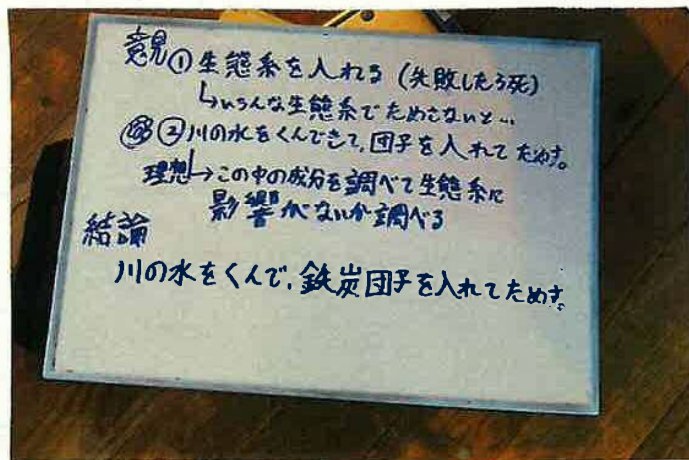 意見①生態系を入れる(失敗したら死)
↳いろんな生態系でためさないと…
②川の水をくんできて、団子を入れてためす。
理想↳この中の成分を調べて生態系に
影響がないか調べる
結論
川の水をくんで、鉄炭団子を入れてためす。